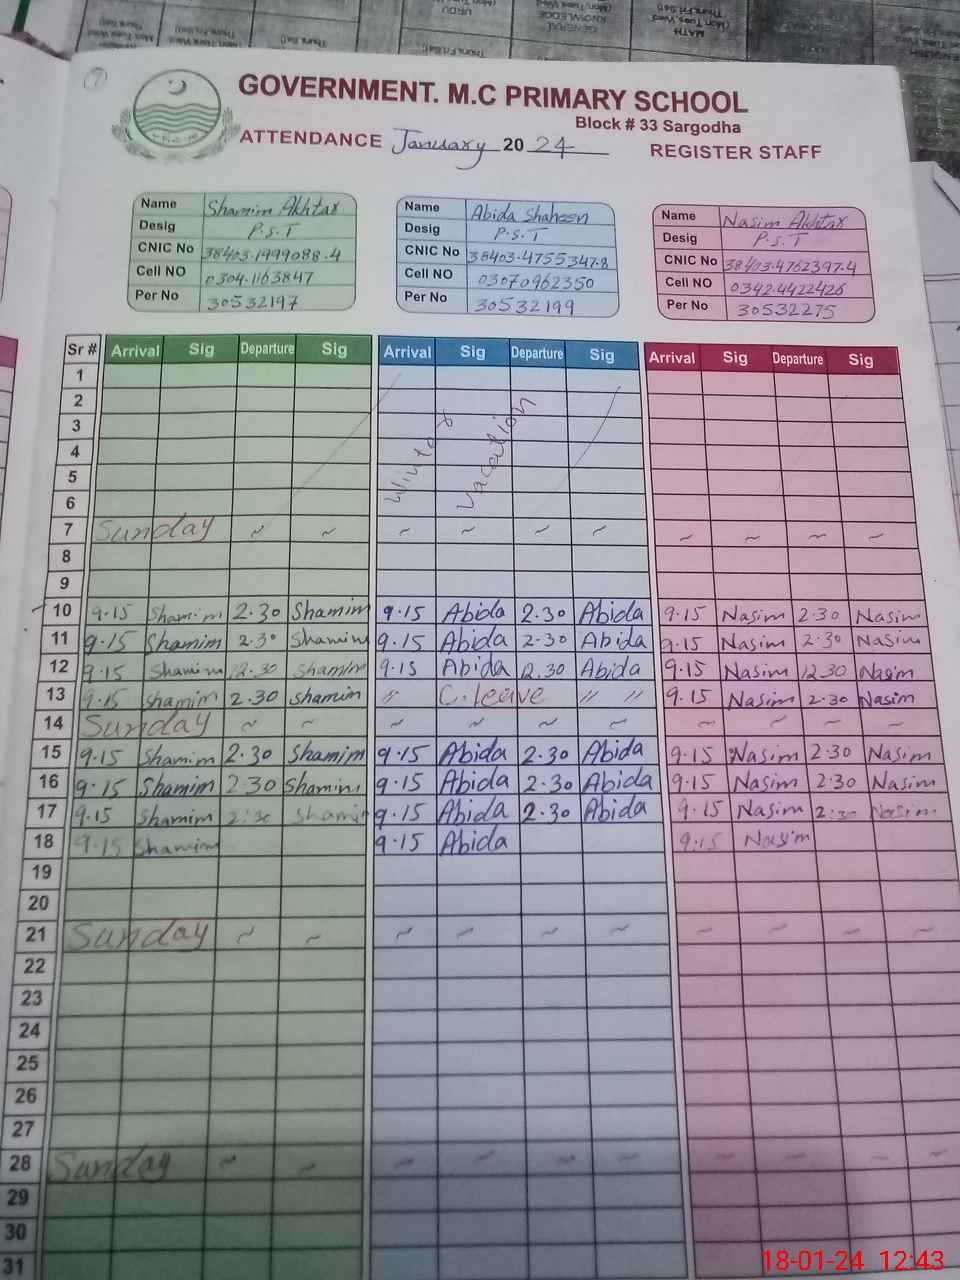 7
GOVERNMENT. M.C PRIMARY SCHOOL
Block # 33 Sargodha
ATTENDANCE January 20 24 REGISTER STAFF
Name Shamim Akhtar
Desig P.S.T
CNIC No 38403-1999088-4
Cell NO 0304-1163847
Per No 30532197
Name Abida Shaheen
Desig P.S.T
CNIC No 38403-4755347-8
Cell NO 03070962350
Per No 30532199
Name Nasim Akhtar
Desig P.S.T
CNIC No 38403-4762397-4
Cell NO 0342-4422426
Per No 30532275
Sr # Arrival Sig Departure Sig Arrival Sig Departure Sig Arrival Sig Departure Sig
1
2
3
4
5
6
Wintar Vacation
7 Sunday ~ ~ ~ ~ ~ ~ ~ ~ ~ ~
8
9
10 9.15 Shamim 2.30 Shamim 9.15 Abida 2.30 Abida 9.15 Nasim 2.30 Nasim
11 9.15 Shamim 2.30 Shamim 9.15 Abida 2.30 Abida 9.15 Nasim 2.30 Nasim
12 9.15 Shamim 12.30 Shamim 9.15 Abida 12.30 Abida 9.15 Nasim 12.30 Nasim
13 9.15 Shamim 2.30 Shamim // C.leave // // 9.15 Nasim 2.30 Nasim
14 Sunday ~ ~ ~ ~ ~ ~ ~ ~ ~ ~
15 9.15 Shamim 2.30 Shamim 9.15 Abida 2.30 Abida 9.15 Nasim 2.30 Nasim
16 9.15 Shamim 2.30 Shamim 9.15 Abida 2.30 Abida 9.15 Nasim 2.30 Nasim
17 9.15 Shamim 2:30 Shamim 9.15 Abida 2.30 Abida 9.15 Nasim 2:30 Nasim
18 9.15 Shamim 9.15 Abida 9.15 Nasim
19
20
21 Sunday ~ ~ ~ ~ ~ ~ ~ ~ ~ ~
22
23
24
25
26
27
28 Sunday ~ ~ ~ ~ ~ ~ ~ ~ ~ ~
29
30
31
18-01-24 12:43